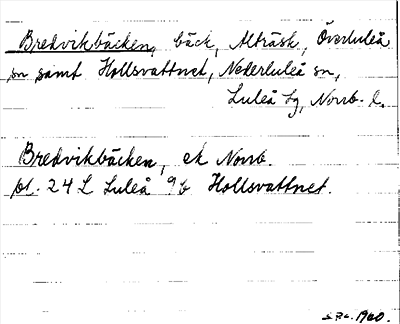 Bredvikbäcken, bäck, Alträsk, Överluleå
sn samt Hollsvattnet, Nederluleå sn,
Luleå tg, Norrb. l.
Bredvikbäcken, ek Norrb.
bl. 24 L Luleå 9b Hollsvattnet.
1960.